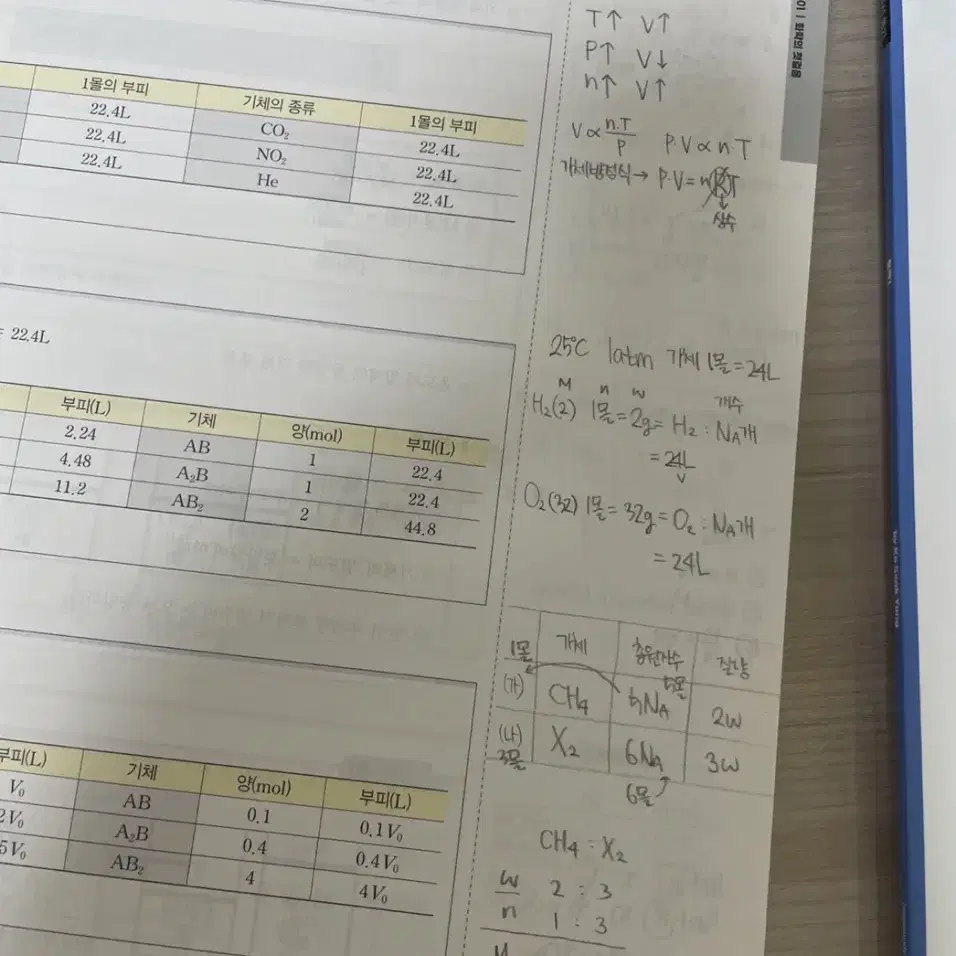 1몰의 부피 기체의 종류 1몰의 부피
22.4L CO₂ 22.4L
22.4L NO₂ 22.4L
22.4L He 22.4L
= 22.4L
부피(L) 기체 양(mol) 부피(L)
2.24 AB 1 22.4
4.48 A₂B 1 22.4
11.2 AB₂ 2 44.8
부피(L) 기체 양(mol) 부피(L)
V₀ AB 0.1 0.1V₀
2V₀ A₂B 0.4 0.4V₀
5V₀ AB₂ 4 4V₀
T↑ V↑
P↑ V↓
n↑ V↑
V∝n·T/P P·V∝n·T
P·V=nRT
상수
25℃ 1atm 기체 1몰=24L
M n w 개수
H₂(2) 1몰=2g=H₂:NA개
=24L
V
O₂(32) 1몰=32g=O₂:NA개
=24L
기체 총원자수 질량
1몰 5몰
(가) CH₄ 5NA 2w
(나) X₂ 6NA 3w
3몰
6몰
CH₄ : X₂
w 2 : 3
n 1 : 3
M
화학의 첫걸음